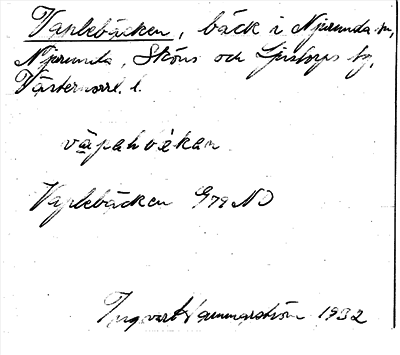 Vaplebäcken, bäck i Njurunda sn,
Njurunda, Sköns och Ljustorps tg,
Västernorrl. l.
väpahbèkan
Vaplebäcken G79 NO
Ingvart Hammarström 1932